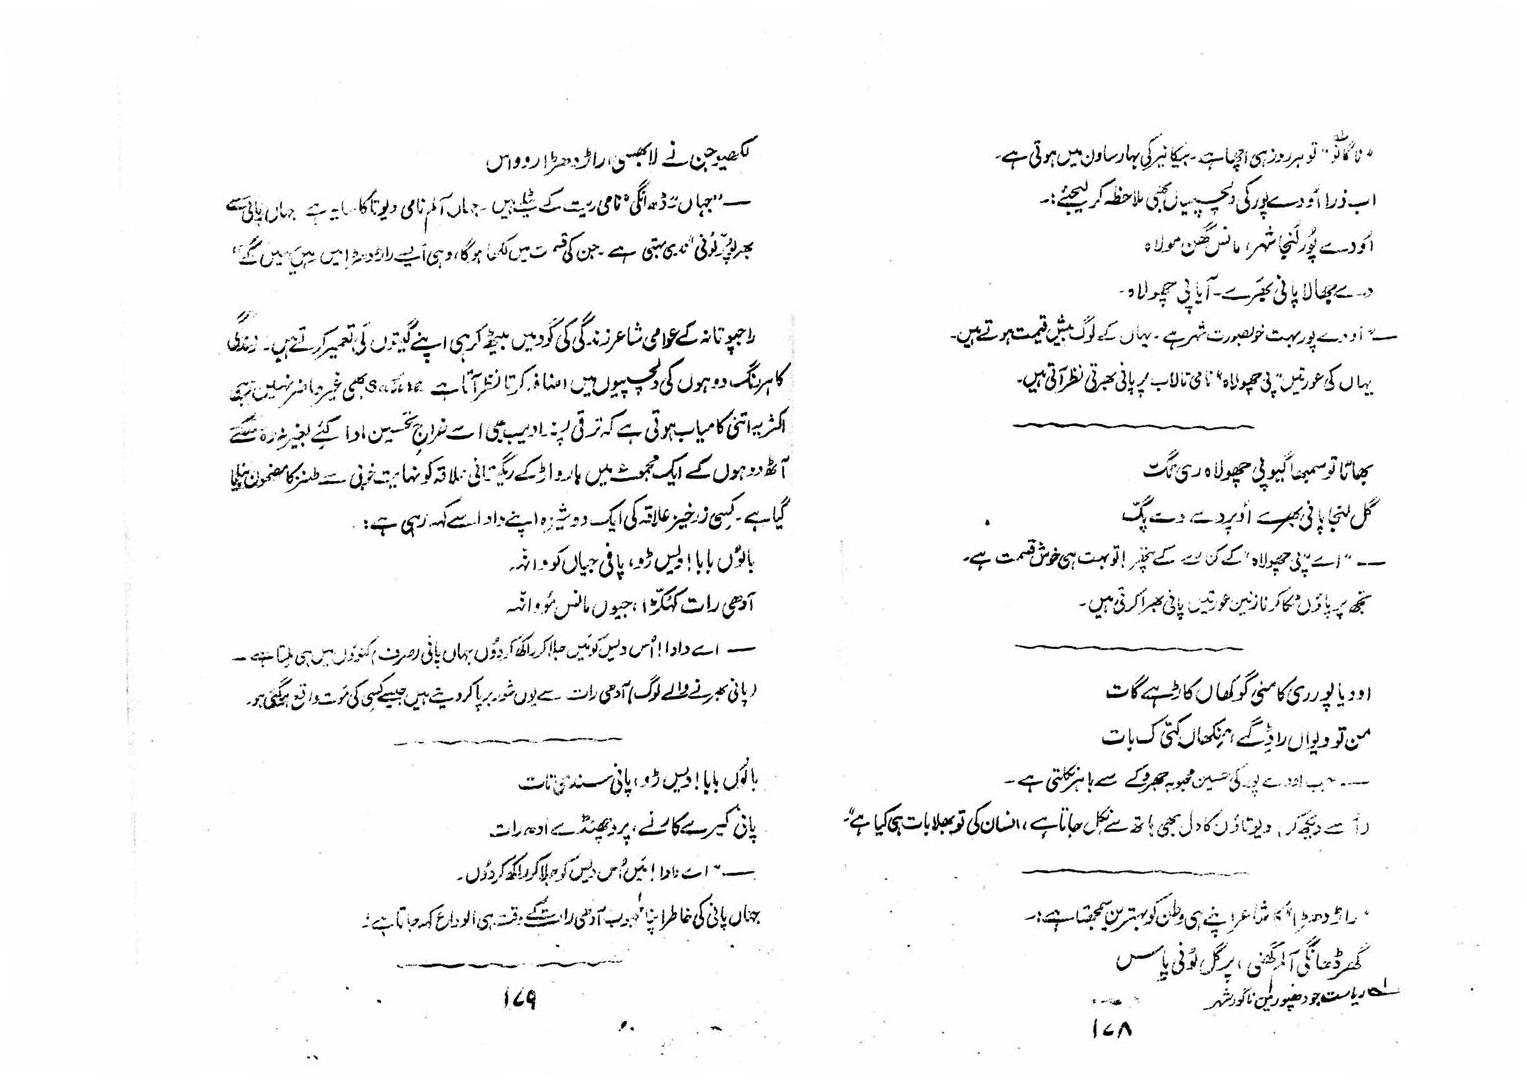 "ناگانو" تو ہر روز ہی اچھا ہے۔ بیکانیر کی بہار ساون میں ہوتی ہے۔
اب ذرا اُودے پور کی دلچسپیاں بھی ملاحظہ کر لیجئے:۔
اُودے پُور لنجا شہر، مانس گھن مولاہ
دے جھالا پانی بھرے۔ آیا پی چھولاہ۔
— "اودے پور بہت خوبصورت شہر ہے۔ یہاں کے لوگ بیش قیمت ہوتے ہیں۔
یہاں کی عورتیں "پی چھولاہ" نامی تالاب پر پانی بھرتی نظر آتی ہیں۔
بھاٹا تو سمبھاگیو پی چھولاہ ری ٹگ
گل لنجا پانی بھرے اُوپر دے دے پگ
— "اے "پی چھولاہ" کے کنارے کے پتھر! تو بہت ہی خوش قسمت ہے۔
تجھ پر پاؤں ٹکا کر نازنین عورتیں پانی بھرا کرتی ہیں۔
اودیا پور ری کامنی گوکھاں کاڑہے گات
من تو دیواں را ڈِگے، منکھاں کتی ک بات
— جب اودے پور کی حسین محبوبہ جھروکے سے باہر نکلتی ہے۔
اُسے دیکھ کر، دیوتاؤں کا دل بھی ہاتھ سے نکل جاتا ہے، انسان کی تو بھلا بات ہی کیا ہے"۔
"راڑدھڑا" کا شاعر اپنے ہی وطن کو بہترین سمجھتا ہے:۔
گھر ڈھانگی آلم گھنی، پر گل لونی پاس
لہ ریاست جودھپور میں ناگور شہر
۱۷۸
لکھیو جن نے لابھسی، راڑدھڑا رو واس
— "جہاں "ڈھانگی" نامی ریت کے ٹیلے ہیں۔ جہاں آلم نامی دیوتا کا سایہ ہے جہاں پانی سے
بھرپُور لُونی "ندی بہتی ہے۔ جن کی قسمت میں لکھا ہوگا، وہی ایسے راڑدھڑا میں بسیں گے"
راجپوتانہ کے عوامی شاعر زندگی کی گود میں بیٹھ کر ہی اپنے گیتوں کی تعمیر کرتے ہیں۔ زندگی
کا ہر رنگ دوہوں کی دلچسپیوں میں اضافہ کرتا نظر آتا ہے Satire بھی غیر حاضر نہیں ہیں
اکثر یہ اتنی کامیاب ہوتی ہے کہ ترقی پسند ادیب بھی اسے خراجِ تحسین ادا کئے بغیر نہ رہ سکتے
آٹھ دوہوں کے ایک مجموعے میں مارواڑ کے ریگستانی علاقہ کو نہایت خوبی سے طنز کا مضمون بنایا
گیا ہے۔ کسی زرخیز علاقہ کی ایک دوشیزہ اپنے دادا سے کہہ رہی ہے:
بالُوں بابا! دیس ڑو، پانی جیاں کوواںہ۔
آدھی رات کُہکڑا، جیوں مانس مُوواںہ
— اے دادا! اُس دیس کو میں جلا کر راکھ کر دُوں جہاں پانی (صرف) کنوؤں میں ہی ملتا ہے —
(پانی بھرنے والے لوگ) آدھی رات سے یوں شور برپا کر دیتے ہیں جیسے کسی کی موت واقع ہو گئی ہو۔
بالُوں بابا! دیس ڑو، پانی سندی تات
پانی کیرے کارنے، پر چھنڈے ادھ رات
— "اے دادا! میں اُس دیس کو جلا کر راکھ کر دُوں۔
جہاں پانی کی خاطر اپنا محبوب آدھی رات کے وقت ہی الوداع کہہ جاتا ہے:
۱۷۹